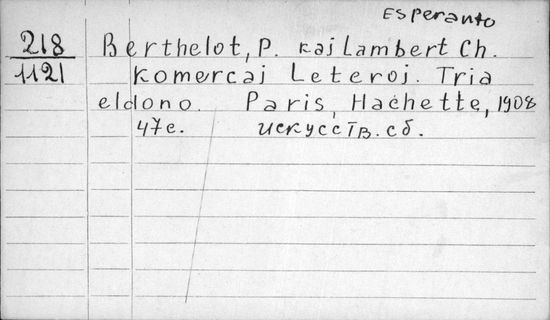 Esperanto
218
1121
Berthelot, P. kaj Lambert Ch.
Komercaj Leteroj. Tria
eldono. Paris, Hachette, 1908
47e. искусств. сб.